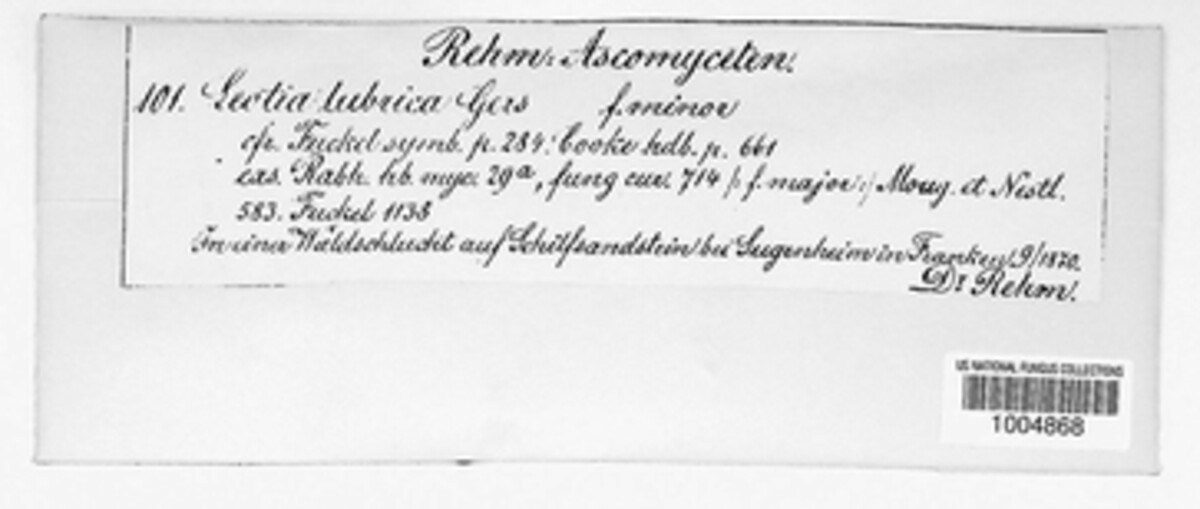 Rehm. Ascomyceten.
101. Leotia lubrica Pers f. minor
cfr. Fuckel symb. p. 284. Cooke hdb. p. 661
exs. Rabh. hb. myc. 29a, fung eur. 714 /: f. major :/ Moug. et Nestl.
583. Fuckel 1138
In einer Waldschlucht auf Schilfsandstein bei Sugenheim in Franken, 9/1870.
Dr Rehm.
US NATIONAL FUNGUS COLLECTIONS
1004868